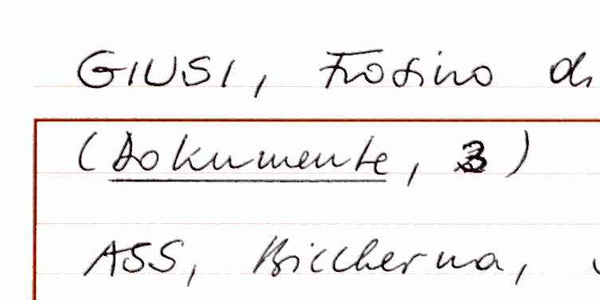 GIUSI, Frosino di
(Dokumente, 3)
ASS, Biccherna,